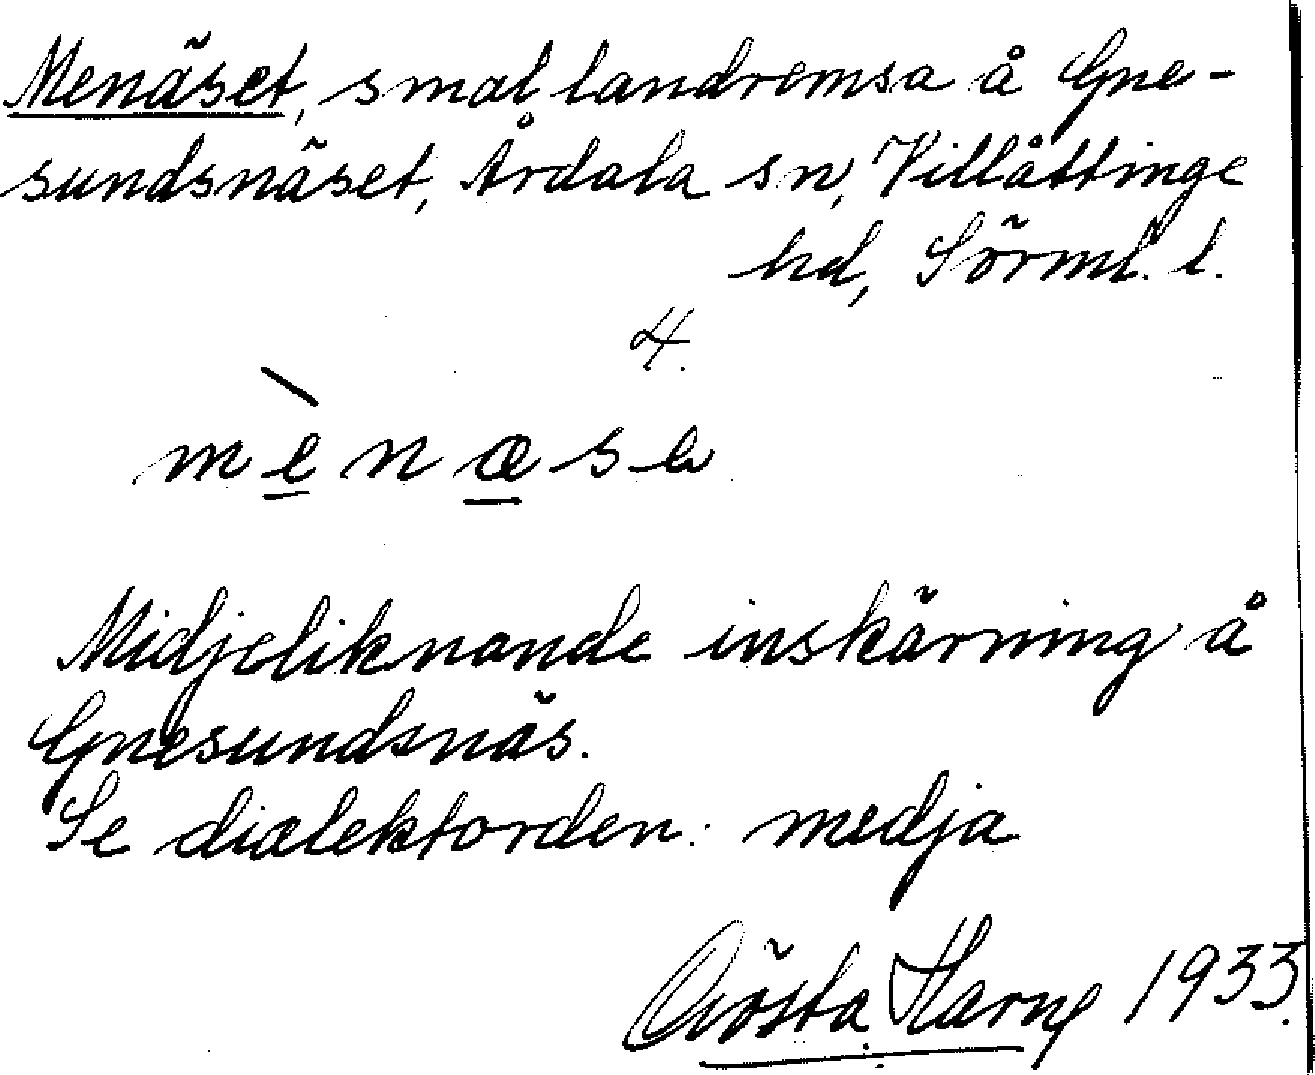 Menäset, smal landremsa å Gne-
sundsnäset, Årdala sn, Villåttinge
hd, Sörml. l.
4.
mènæse
Midjeliknande inskärning å
Gnesundsnäs.
Se dialektorden: medja
Gösta Harne 1933.